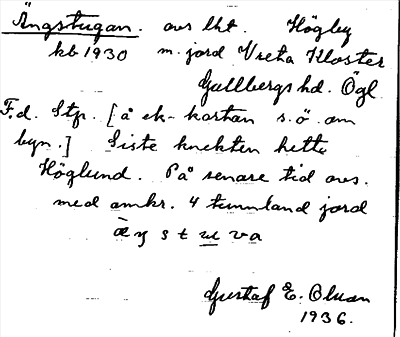 Ängstugan. avs lht. Högby
kb 1930 m. jord Vreta Kloster
Gullbergs hd. Ögl.
F.d. Stp. [å ek-kartan s.ö. om
byn.] Siste knekten hette
Höglund. På senare tid avs.
med omkr. 4 tunnland jord
æŋstuva
Gustaf E. Olsson
1936.